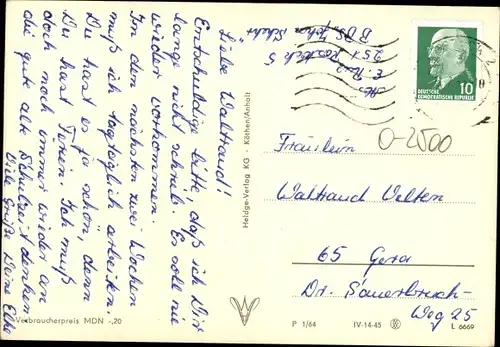 Liebe Waltraud!
Entschuldige bitte, daß ich Dir
lange nicht schrieb. Es soll nie
wieder vorkommen.
In den nächsten zwei Wochen
muß ich tagtäglich arbeiten.
Du hast es ja schön, denn
Du hast Ferien. Ich muß
doch noch immer wieder an
die gute alte Schulzeit denken
Viele Grüße Deine Elke
Verbraucherpreis MDN -,20
Heldge-Verlag KG · Köthen/Anhalt
251 Rostock 5
DEUTSCHE
DEMOKRATISCHE REPUBLIK
10
O-2500
Fräulein
Waltraud Velten
65 Gera
Dr. Sauerbruch-
Weg 25
P 1/64 IV-14-45 L 6669